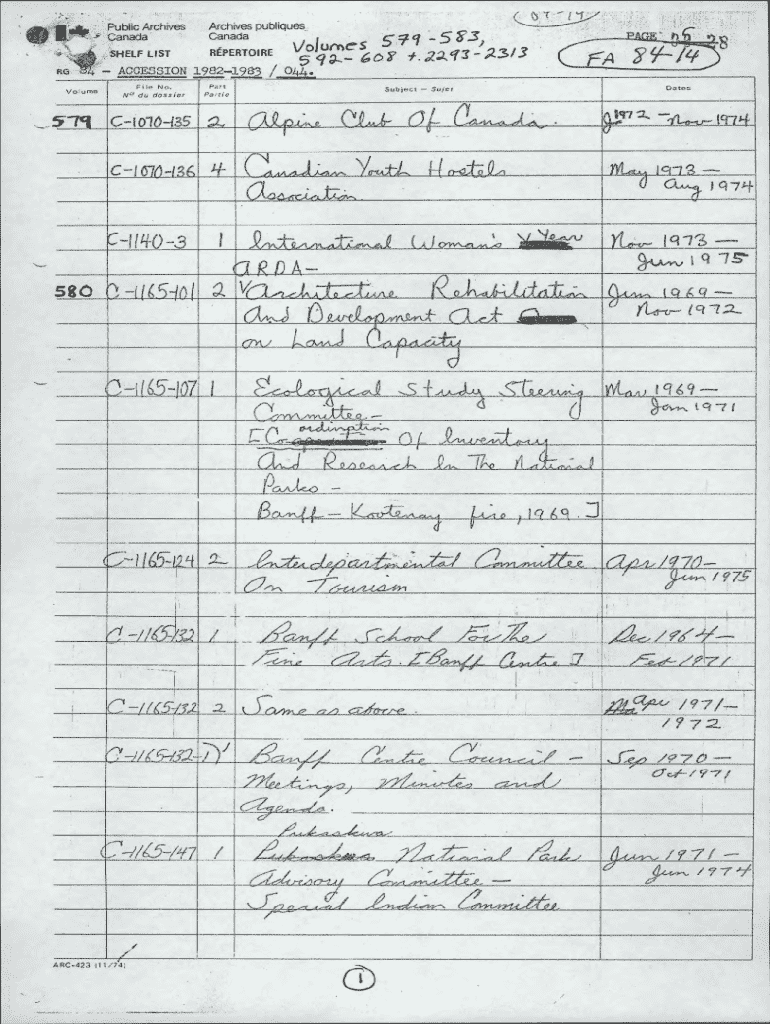 (07-14)
Public Archives Canada
Archives publiques Canada
Volumes 579-583,
592-608 + 2293-2313
PAGE 28
FA 84-14
SHELF LIST
RÉPERTOIRE
RG 84 - ACCESSION 1982-1983 / 044.
Volume
File No. N° du dossier
Part Partie
Subject - Sujet
Dates
579 C-1070-135 2 Alpine Club Of Canada. 1972 - Nov 1974
C-1070-136 4 Canadian Youth Hostels May 1973 -
Association Aug 1974
C-1140-3 1 International Woman's Year Nov 1973 -
Jun 1975
ARDA-
580 C-1165-101 2 Architecture Rehabilitation Jun 1969 -
And Development Act Nov 1972
on Land Capacity
C-1165-107 1 Ecological Study Steering Mar 1969 -
Committee - Jan 1971
[Coordination Of Inventory
And Research In The National
Parks -
Banff - Kootenay fire, 1969.]
C-1165-124 2 Interdepartmental Committee Apr 1970-
On Tourism Jun 1975
C-1165-132 1 Banff School For The Dec 1964 -
Fine Arts. [Banff Centre] Feb 1971
C-1165-132 2 Same as above. Apr 1971-
1972
C-1165-132-1 1 Banff Centre Council - Sep 1970 -
Meetings, Minutes and Oct 1971
Agenda.
Pukaskwa
C-1165-147 1 National Park Jun 1971 -
Advisory Committee - Jun 1974
Special Indian Committee
ARC-423 (11/74)
1